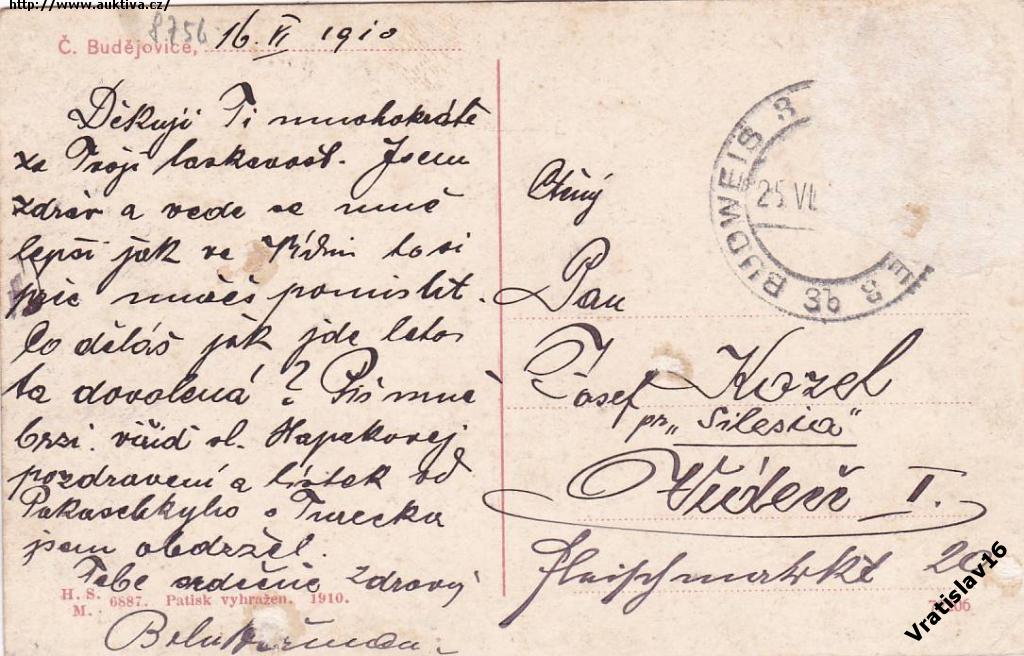 http://www.auktiva.cz/
8756
Č. Budějovice, 16. VI 1910
Děkuji Ti mnohokráte
za Tvoji laskavost. Jsem
zdráv a vede se mně
lepší jak ve Vídni to si
pomislit.
Co děláš jak jde letos
ta dovolená? Piš mně
brzi. sl.
pozdravení a lístek od
z Turecka
jsem obdržel.
Tebe srdečně zdraví
H. S.
M. 6887. Patisk vyhražen. 1910.
BUDWEIS 3
3b
25. VII
Ctěný
Pan
Josef Kozel
pr. „Silesia"
Vídeň I.
Fleischmarkt 20
Vratislav16